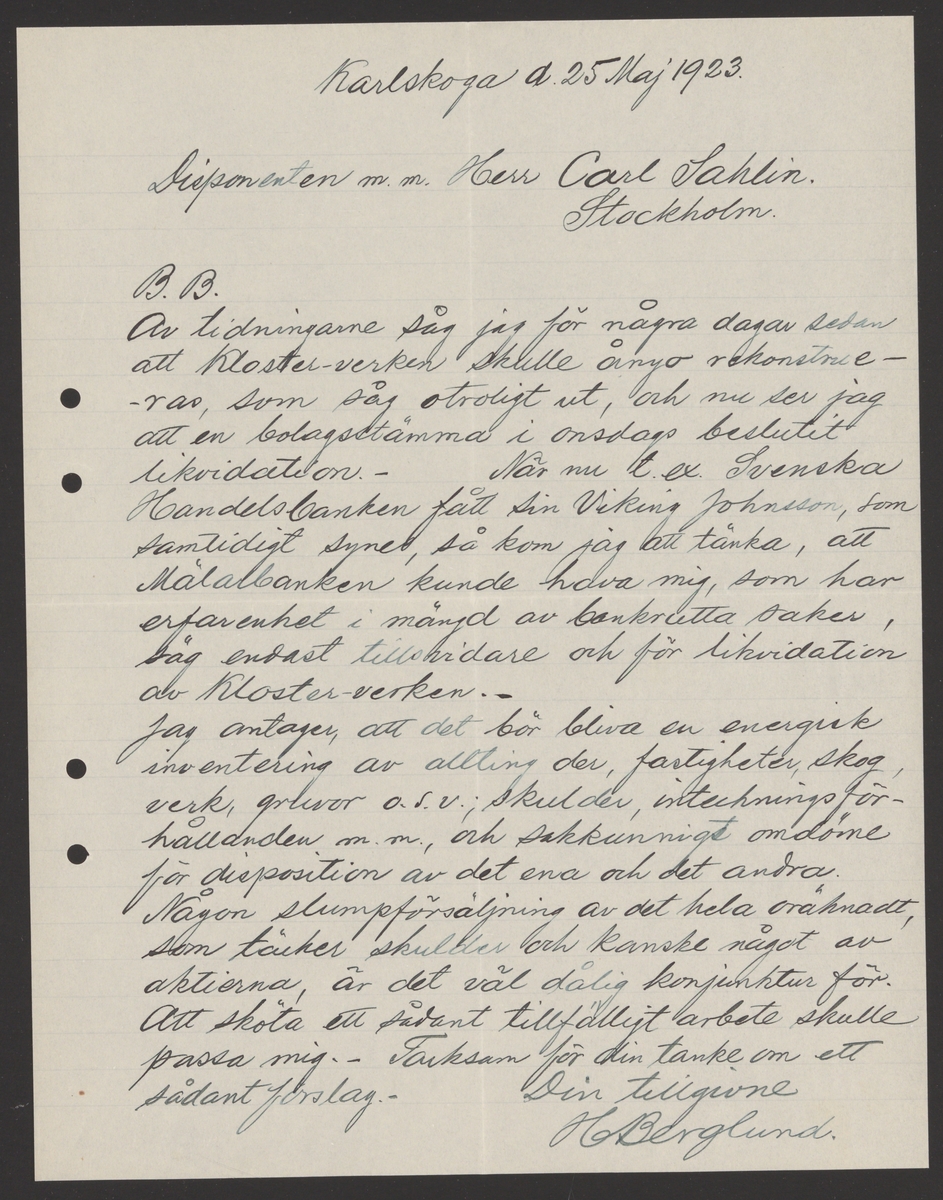 Karlskoga d. 25 Maj 1923.
Disponenten m. m. Herr Carl Sahlin.
Stockholm.
B. B.
Av tidningarne såg jag för några dagar sedan
att Kloster-verken skulle ånyo rekonstrue-
-ras, som såg otroligt ut, och nu ser jag
att en bolagsstämma i onsdags beslutit
likvidation. - När nu t. ex. Svenska
Handelsbanken fått sin Viking Johnsson, som
samtidigt synes, så kom jag att tänka, att
Mälarbanken kunde hava mig, som har
erfarenhet i mängd av bankrutta saker,
säg endast tillsvidare och för likvidation
av Kloster-verken. -
Jag antager, att det bör bliva en energisk
inventering av allting der, fastigheter, skog,
verk, gruvor o. s. v.; skulder, inteckningsför-
hållanden m. m., och sakkunnigt omdöme
för disposition av det ena och det andra.
Någon slumpförsäljning av det hela oräknadt,
som täcker skulder och kanske något av
aktierna, är det väl dålig konjunktur för.
Att sköta ett sådant tillfälligt arbete skulle
passa mig. - Tacksam för din tanke om ett
sådant förslag. - Din tillgivne
H Berglund.